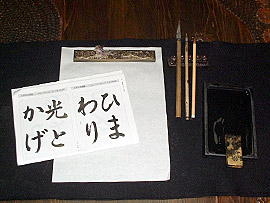 ひま
わり
光と
かげ